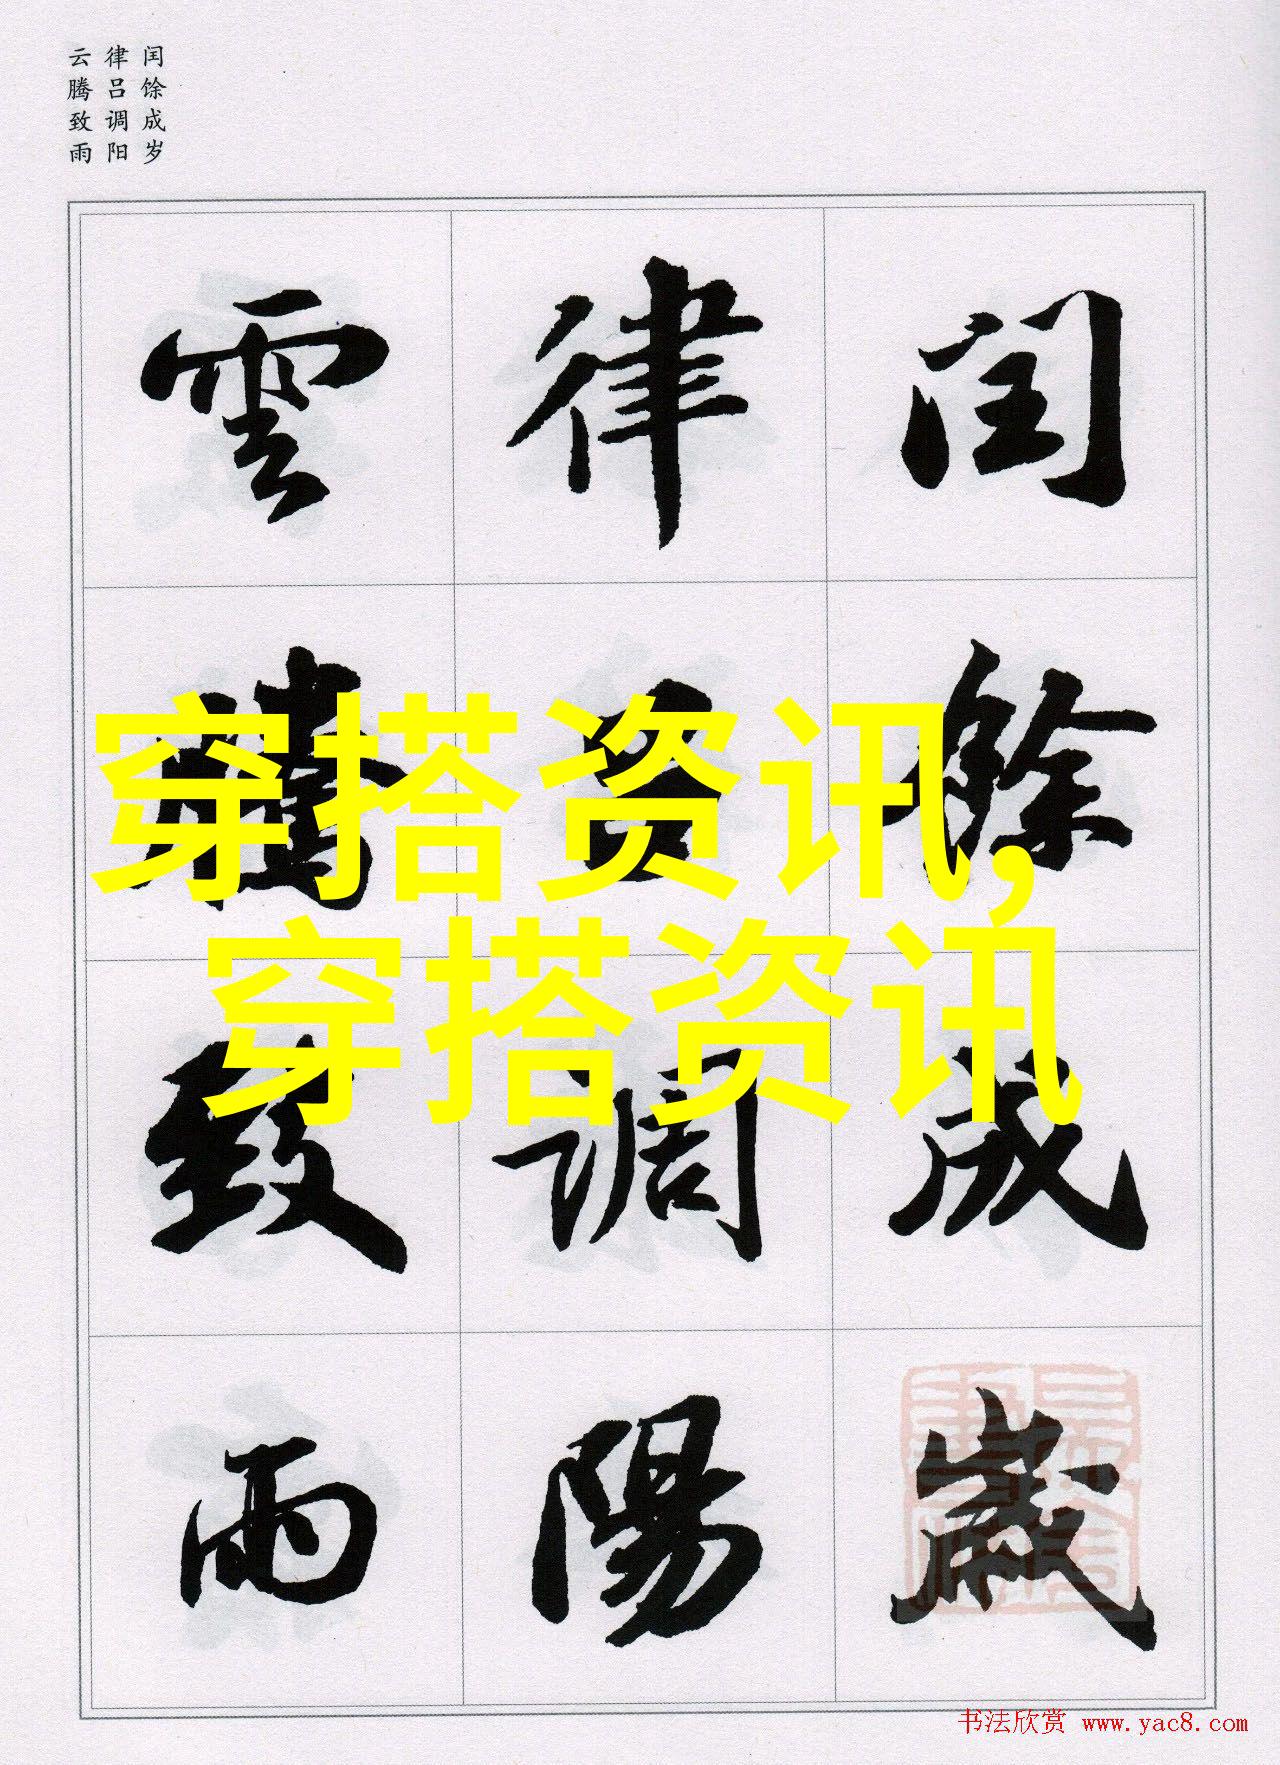 闰馀成岁
律吕调阳
云腾致雨
閏餘成歲
律吕調陽
雲騰致雨
穿搭资讯,
穿搭资讯
书法欣赏 www.yac8.com